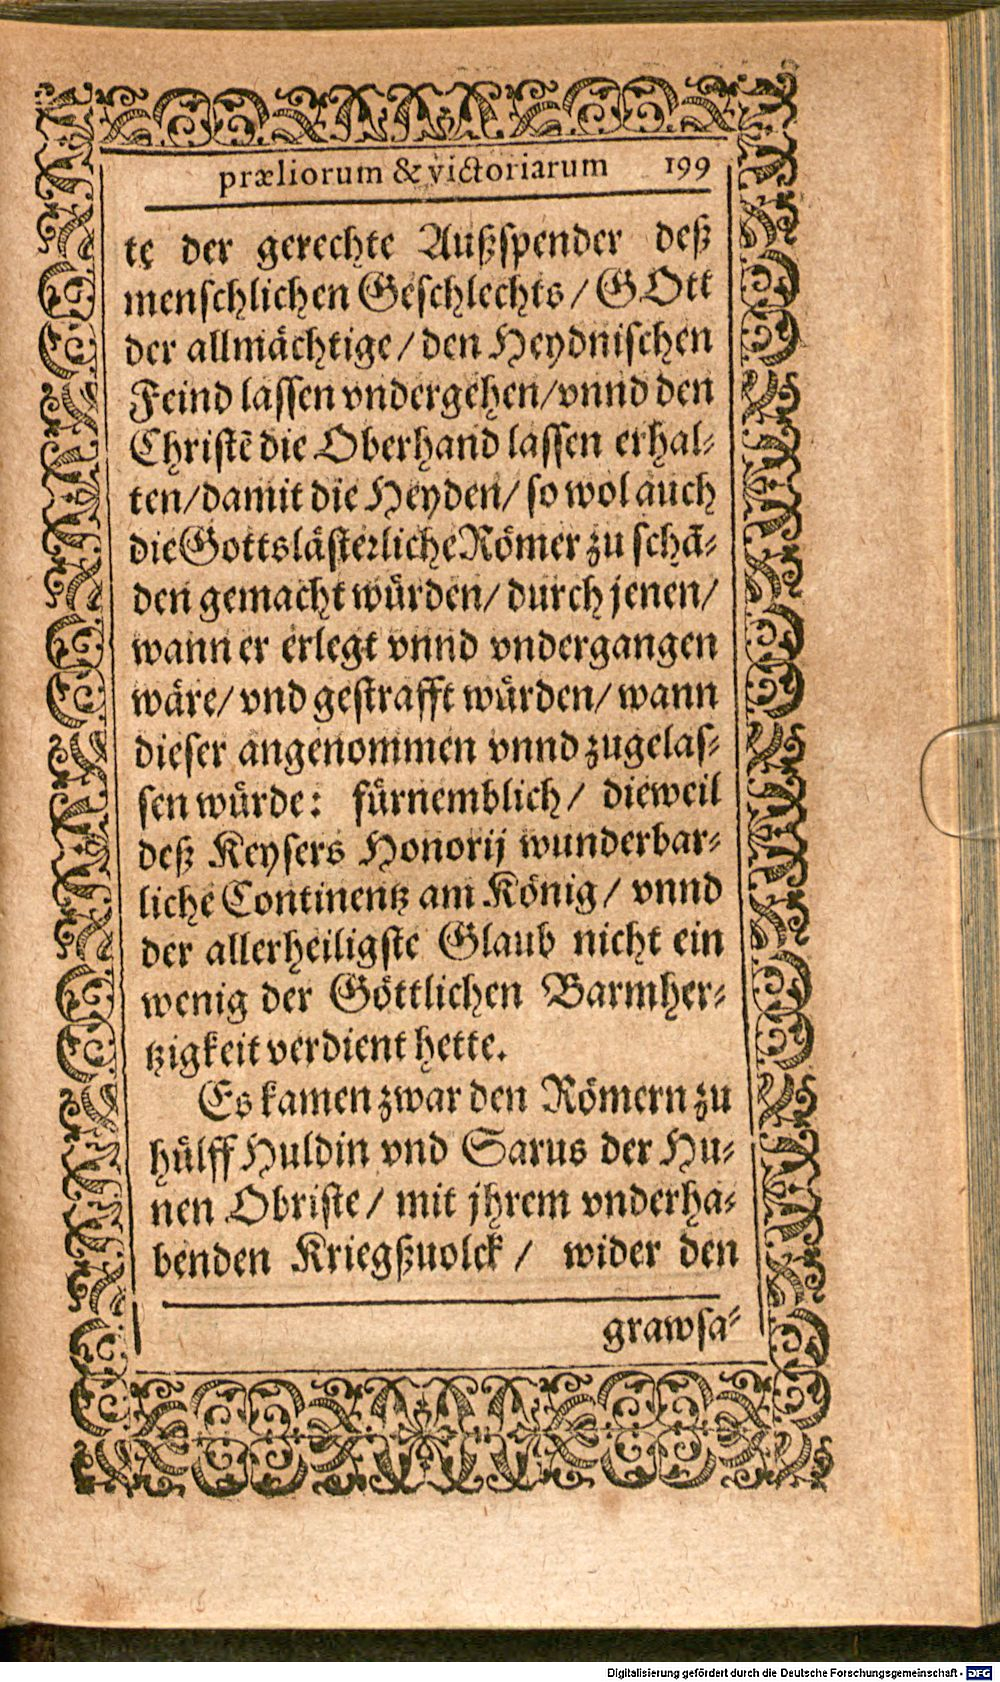 præliorum & victoriarum 199
te der gerechte Außspender deß
menschlichen Geschlechts / GOtt
der allmächtige / den Heydnischen
Feind lassen vndergehen / vnnd den
Christē die Oberhand lassen erhal-
ten / damit die Heyden / so wol auch
die Gottslästerliche Römer zu schā-
den gemacht würden / durch jenen /
wann er erlegt vnnd vndergangen
wäre / vnd gestrafft würden / wann
dieser angenommen vnnd zugelas-
sen würde: fürnemblich / dieweil
deß Keysers Honorij wunderbar-
liche Continentz am König / vnnd
der allerheiligste Glaub nicht ein
wenig der Göttlichen Barmher-
tzigkeit verdient hette.
Es kamen zwar den Römern zu
hülff Huldin vnd Sarus der Hu-
nen Obriste / mit jhrem vnderha-
benden Kriegßuolck / wider den
grawsa-
Digitalisierung gefördert durch die Deutsche Forschungsgemeinschaft - DFG